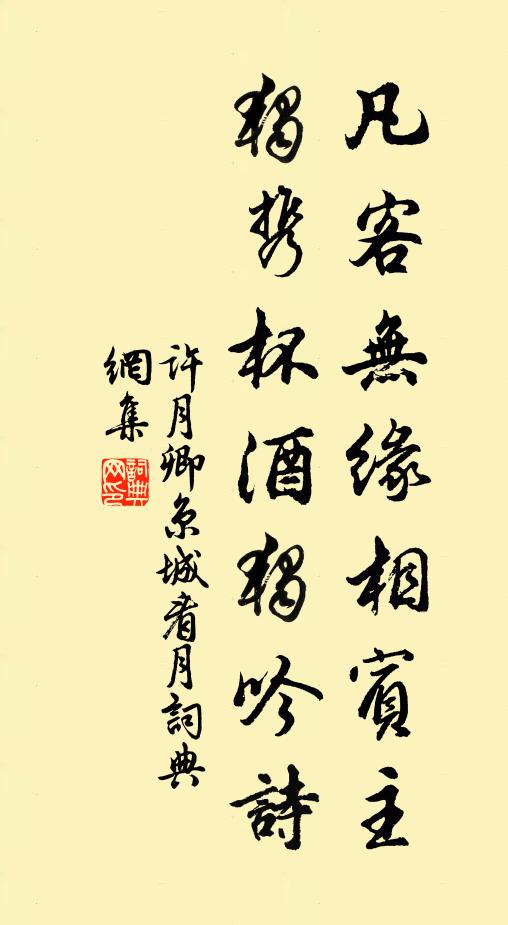 凡客無緣相賓主
獨携杯酒獨吟詩
許月卿京城看月詞典
網集
詞典網印